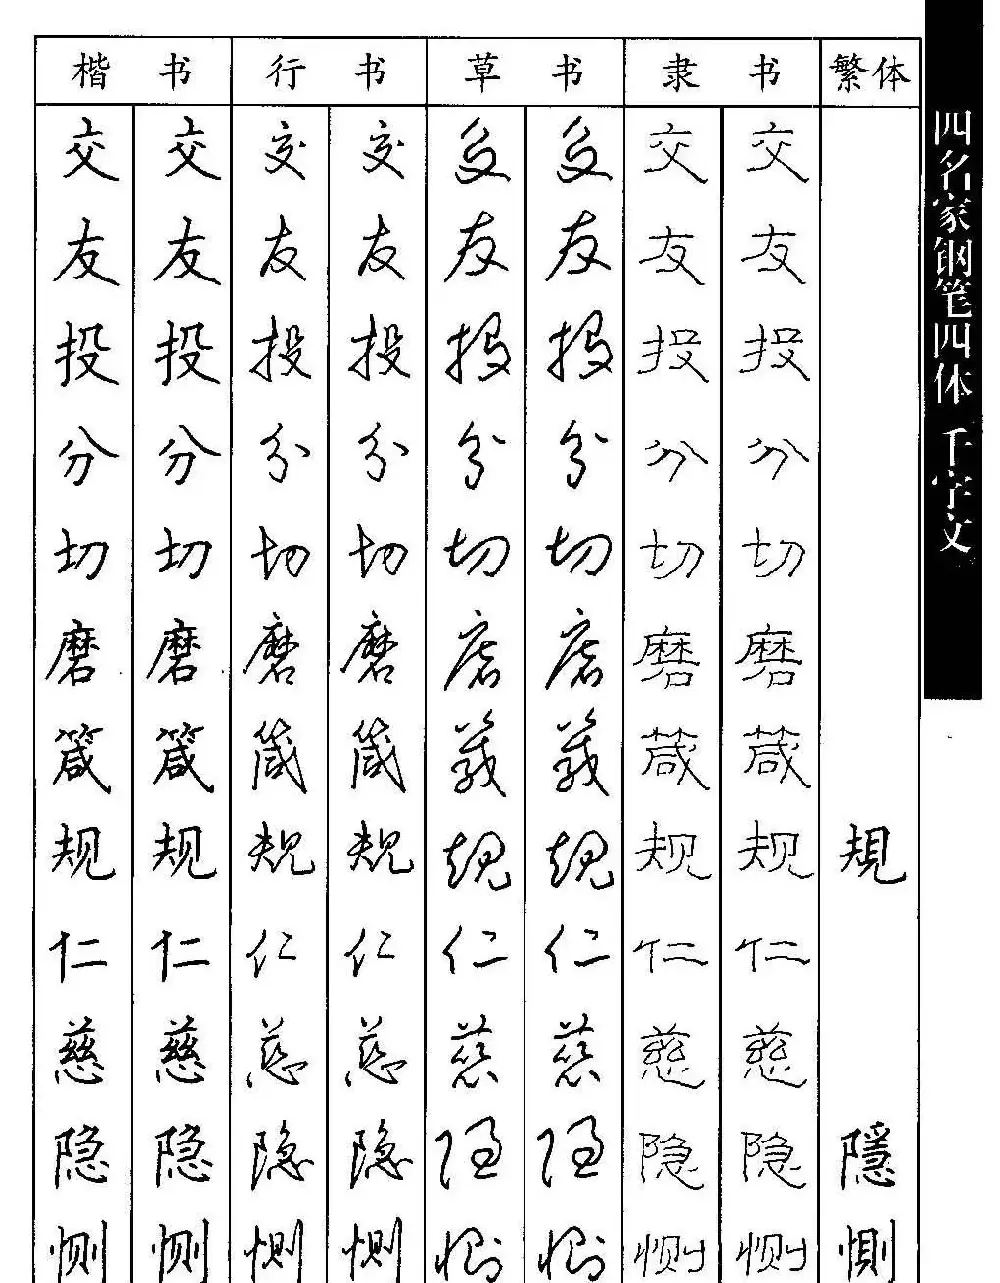 楷书 行书 草书 隶书 繁体
交 交 交 交 交 交 交 交
友 友 友 友 友 友 友 友
投 投 投 投 投 投 投 投
分 分 分 分 分 分 分 分
切 切 切 切 切 切 切 切
磨 磨 磨 磨 磨 磨 磨 磨
箴 箴 箴 箴 箴 箴 箴 箴
规 规 规 规 规 规 规 规 規
仁 仁 仁 仁 仁 仁 仁 仁
慈 慈 慈 慈 慈 慈 慈 慈
隐 隐 隐 隐 隐 隐 隐 隐 隱
恻 恻 恻 恻 恻 恻 恻 恻 惻
四名家钢笔四体 千字文